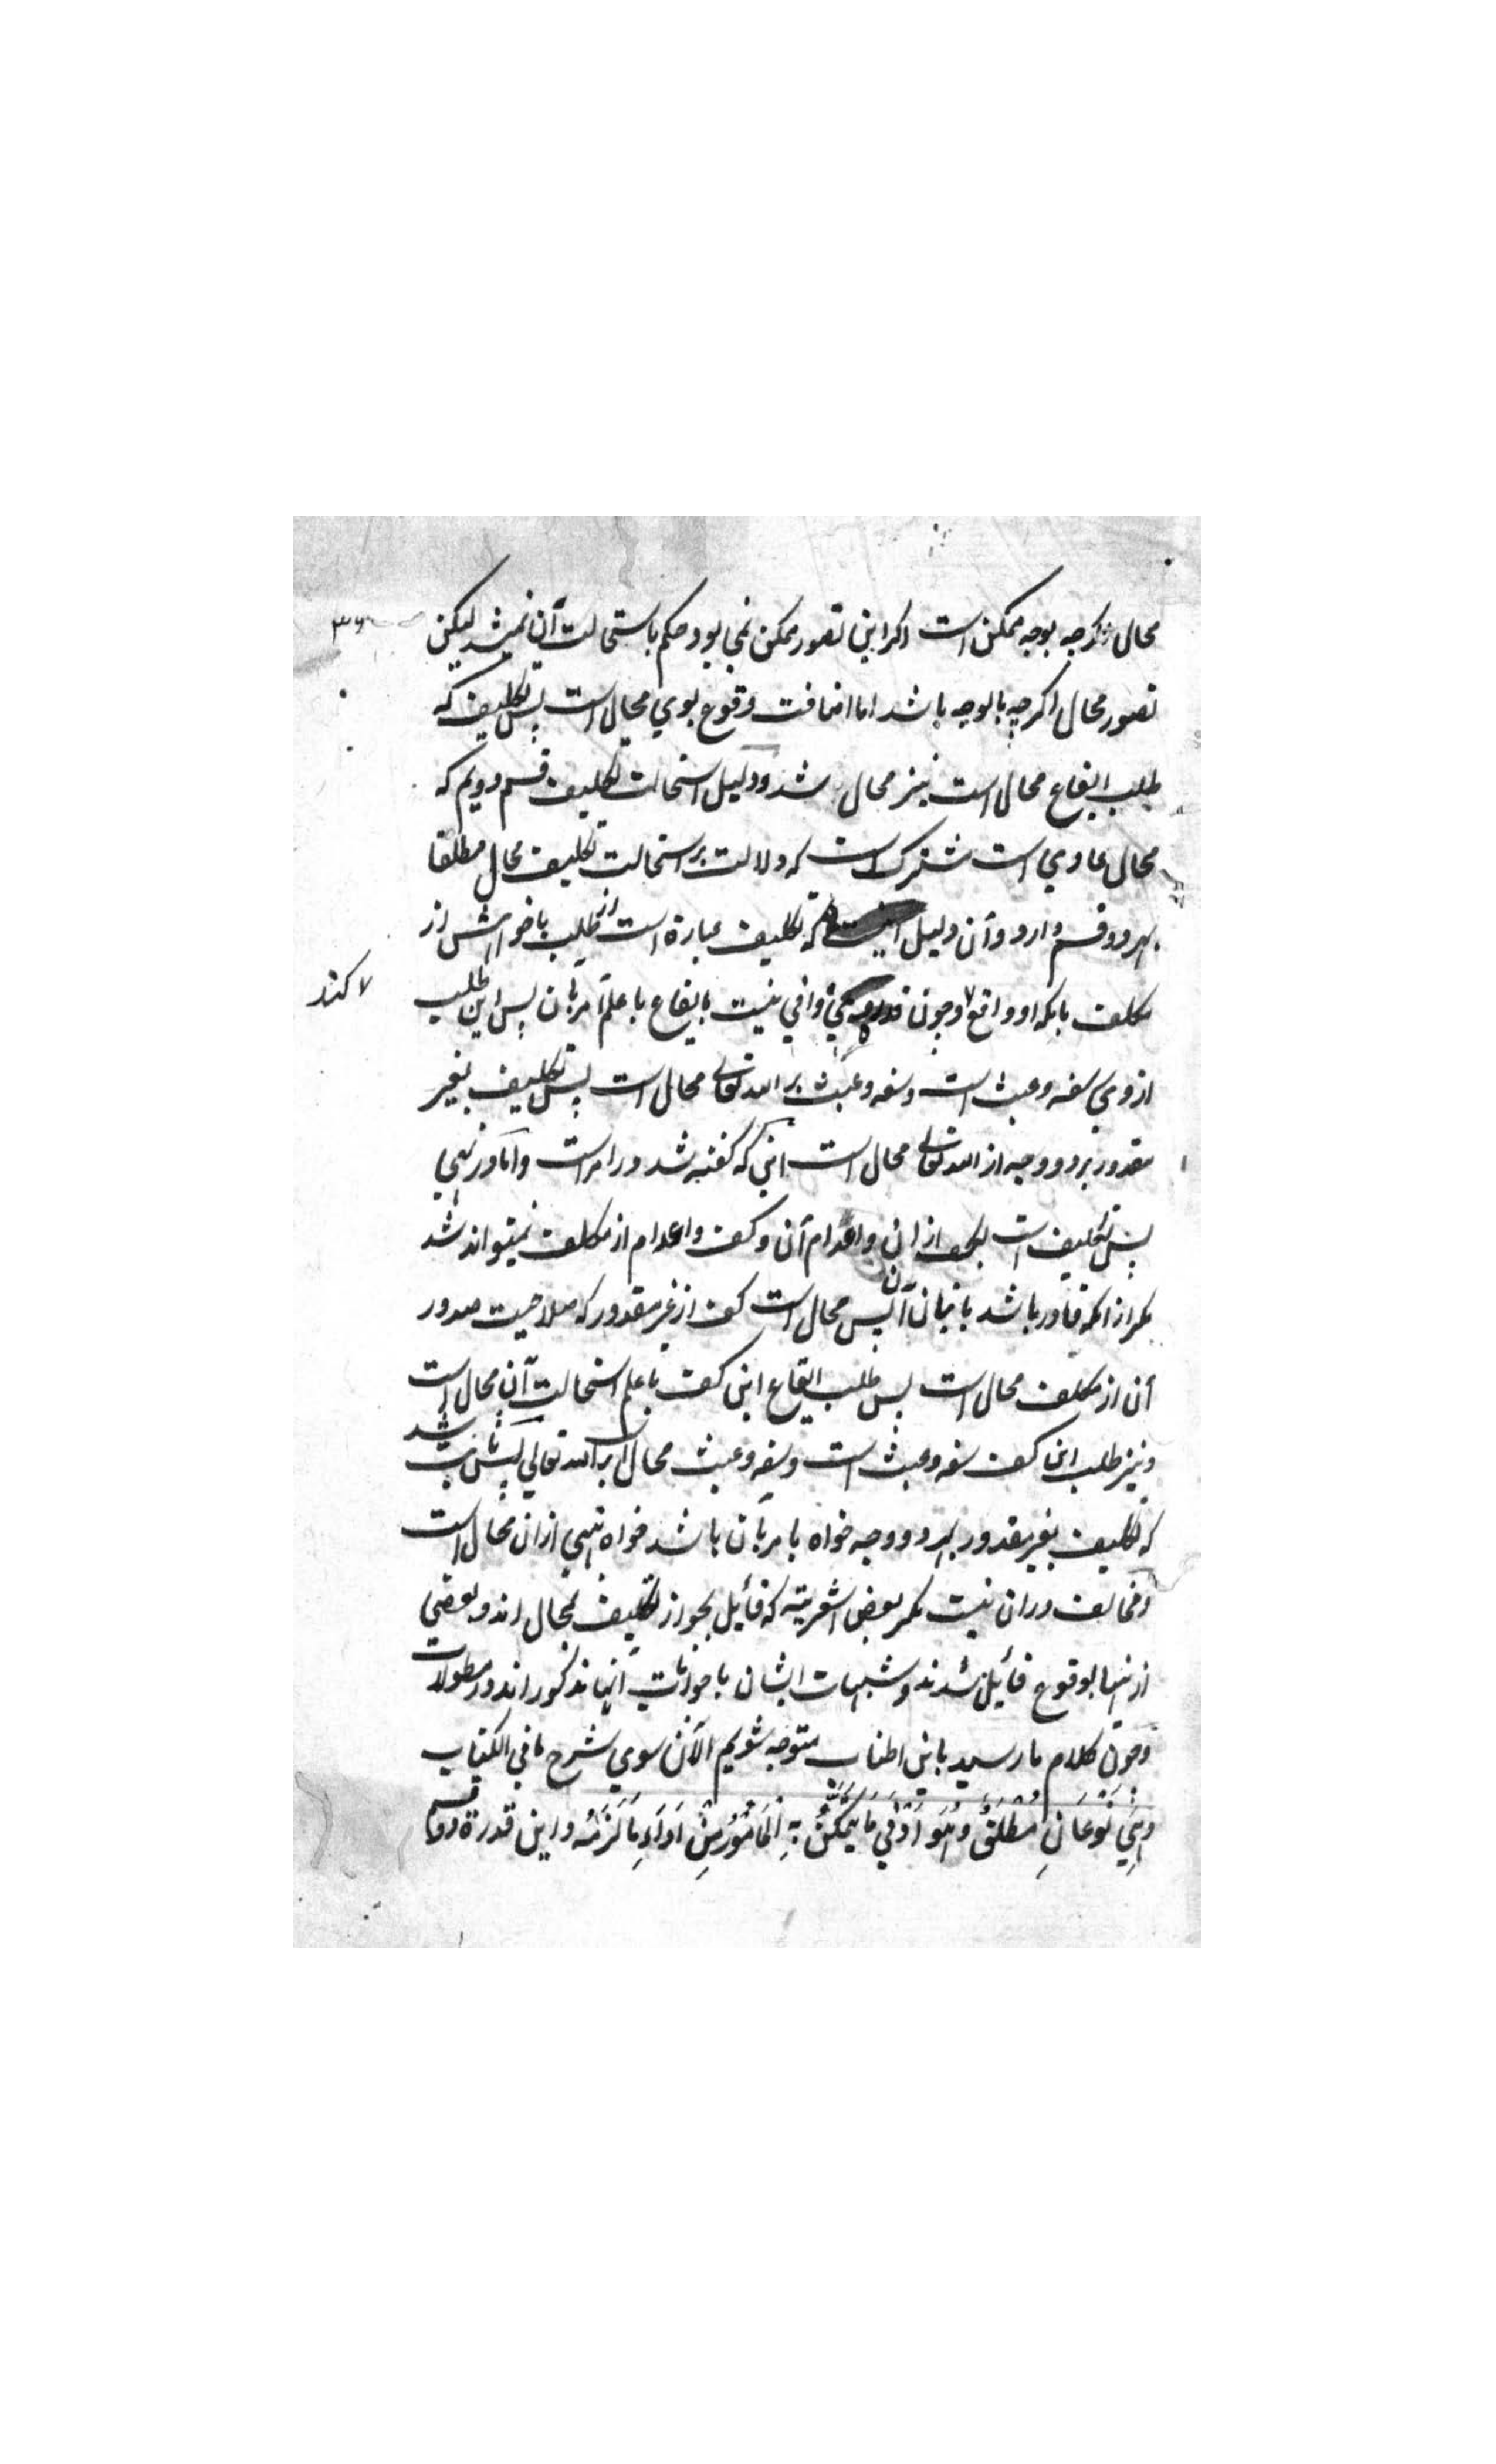 محال اگرچه بوجه ممکن است اکر این تصور ممکن نمی بود حکم باستحالت آن نمیشد لیکن
تصور محال اکرچه بالوجه باشد اما اضافت وقوع بوی محال است پس تکلیف که
طلب ایقاع محال است نیز محال شد و دلیل استحالت تکلیف قسم دویم که
محال عادی است مشترک است که دلالت بر استحالت تکلیف محال مطلقا
بهر دو قسم دارد و آن دلیل اینست که تکلیف عبارة است از طلب با خواهش از
مکلف بانکه او واقع کند و چون نیست بایقاع با علم آمر بآن پس این طلب
از وی سفه و عبث است و سفه و عبث بر الله تعالی محال است پس تکلیف بغیر
مقدور بر دو وجه از الله تعالی محال است این که گفته شد در امر است و اما در نهی
پس تکلیف است بکف از ان و اعدام آن و کف و اعدام از مکلف نمیتواند شد
مکر از انکه قادر باشد باتیان آن پس محال است کف از غیر مقدور که صلاحیت صدور
آن از مکلف محال است پس طلب ایقاع این کف با علم استحالت آن محال است
و نیز طلب این کف سفه و عبث است و سفه و عبث محال است بر الله تعالی پس ثابت شد
که تکلیف بغیر مقدور بهر دو وجه خواه بامر بآن باشد خواه بنهی از ان محال است
و مخالف در ان نیست مکر بعض اشعریه که قائل بجواز تکلیف بمحال اند و بعضی
از انها بوقوع قائل شدند و شبهات ایشان با جوابات آنها مذکور اند در مطولات
و چون کلام ما رسید باین اطناب متوجه شویم الآن سوی شرح ما فی الکتاب
وَهِيَ نَوْعَانِ مُطْلَقٌ وَهُوَ اَدْنٰي مَا يَتَمَكَّنُ بِهِ الْمَأْمُوْرُ مِنْ اَدَاءِ مَا لَزِمَهُ و این قدرة دو قسم